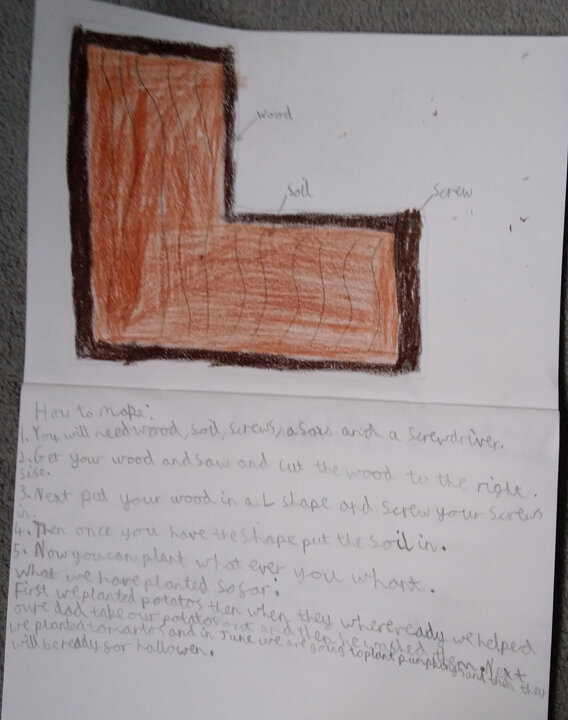 wood
soil
screw
How to make:
1. You will need wood, soil, screws, a saw and a screwdriver.
2. Get your wood and saw and cut the wood to the right
sise.
3. Next put your wood in a L shape and screw your screws
in.
4. Then once you have the shape put the soil in.
5. Now you can plant what ever you whant.
What we have planted so far:
First we planted potatos then when they where ready we helped
oure dad take our potatos out and then he washed them. Next
we planted tomartos and in June we are going to plant pumpkins and then they
will be ready for hallowen.